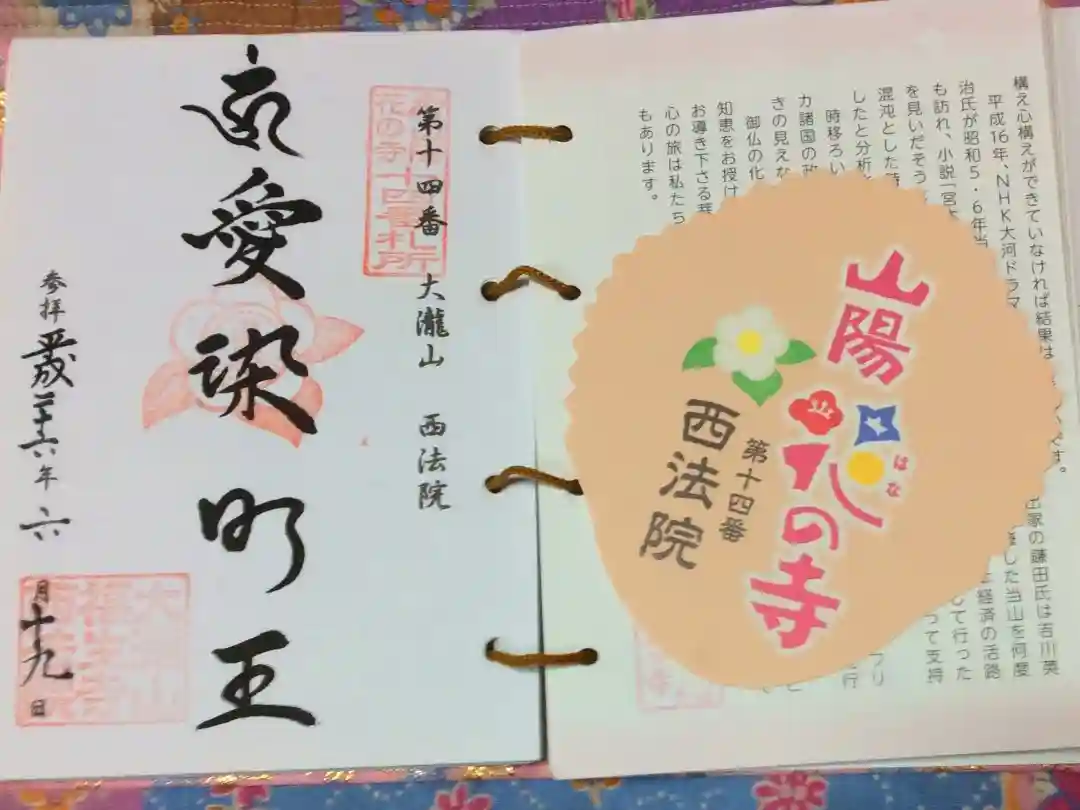 構え心構えができていなければ結果は
です。
平成16年、NHK大河ドラマ
の鎌田氏は吉川英
治氏が昭和5・6年当
した当山を何度
も訪れ、小説「宮
経済の活路
を見いだそう
して行った
混沌とした
って支持
したと分析
時移ろい
カ諸国の政
きの見えな
御仏の化
知恵をお授け
お導き下さる
心の旅は私たち
もあります。
山陽花の寺
はな
第十四番
西法院
第十四番 大瀧山 西法院
花の寺十四番札所
愛染明王
参拝 平成二十六年六月十九日